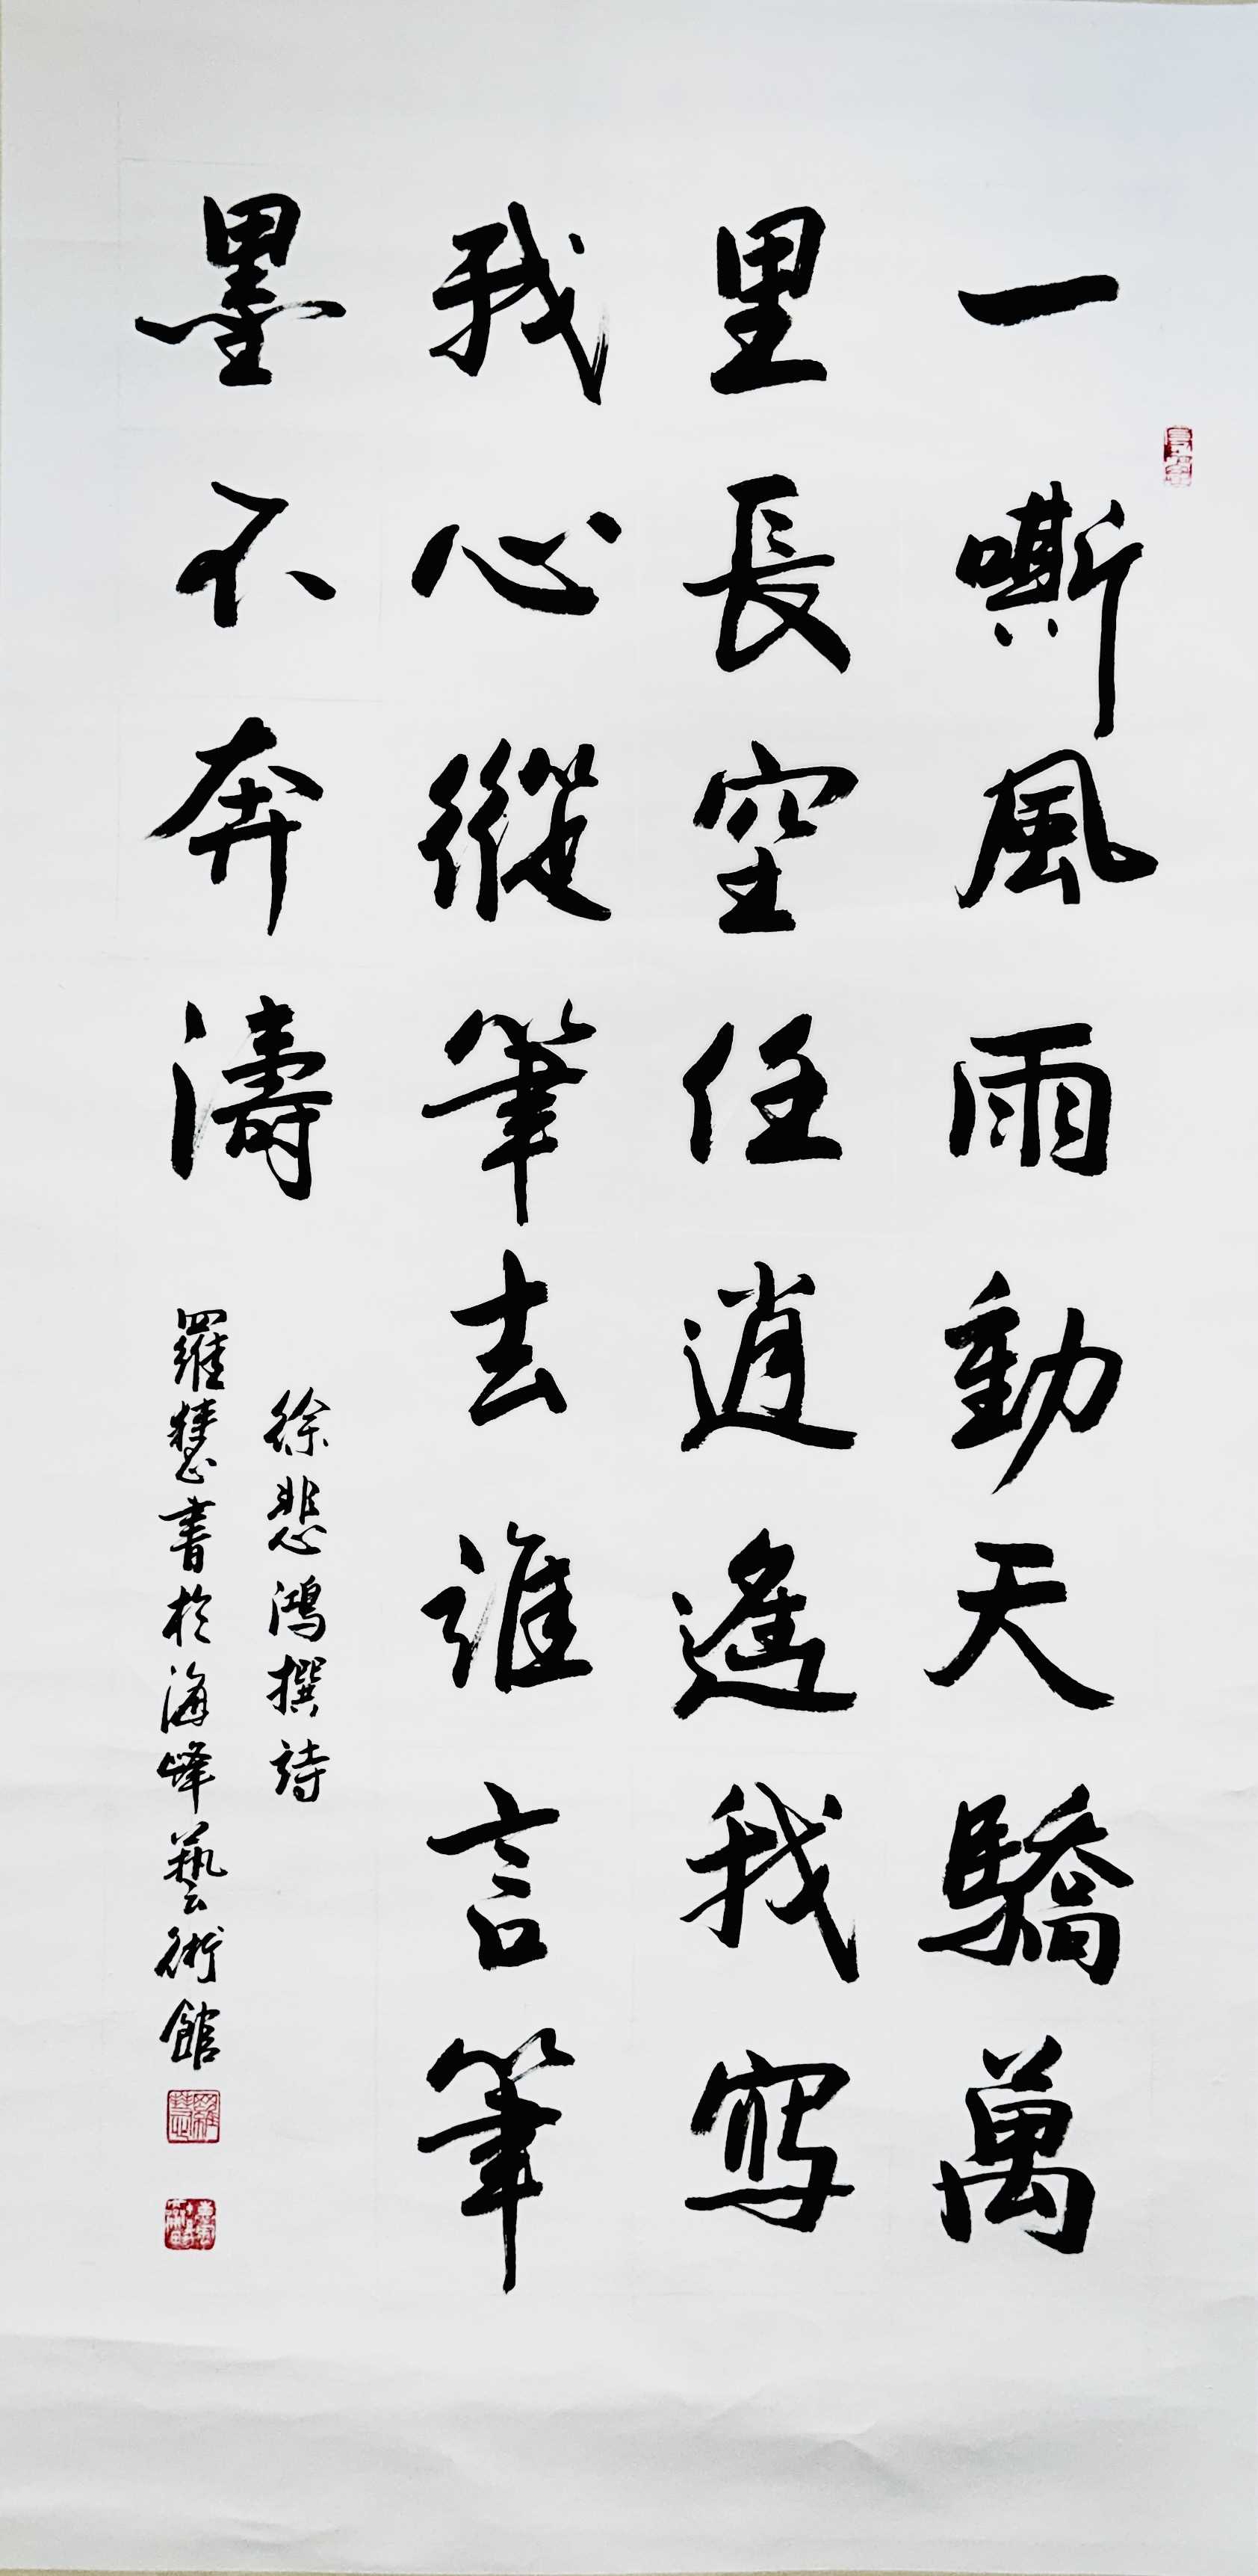 一嘶風雨動天驕萬
里長空任逍遙我寫
我心縱筆去誰言筆
墨不奔濤
徐悲鴻撰詩
羅慧書於海峰藝術館
羅慧